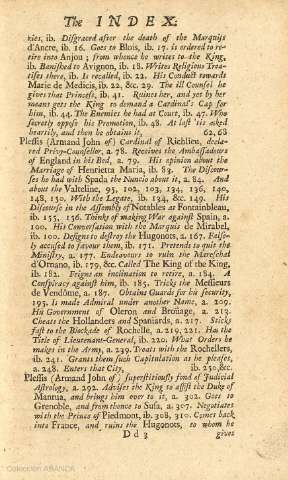 The INDEX.
ries, ib. Disgraced after the death of the Marquis
d'Ancre, ib. 16. Goes to Blois, ib. 17. is ordered to re-
tire into Anjou; from whence he writes to the King,
ib. Banished to Avignon, ib. 18. Writes Religious Trea-
tises there, ib. Is recalled, ib. 22. His Conduct towards
Marie de Medicis, ib. 22, &c. 29. The ill Counsel he
gives that Princess, ib. 41. Ruines her, and yet by her
means gets the King to demand a Cardinal's Cap for
him, ib. 44. The Enemies he had at Court, ib. 47. Who
secretly oppose his Promotion, ib. 48. At last is asked
heartily, and then he obtains it, 62, 63
Plessis (Armand John of) Cardinal of Richlieu, decla-
red Privy-Counsellor, a. 78. Receives the Ambassadours
of England in his Bed, a. 79. His opinion about the
Marriage of Henrietta Maria, ib. 83. The Discour-
ses he had with Spada the Nuncio about it, a. 84. And
about the Valteline, 95, 102, 103, 134, 136, 140,
148, 150. With the Legate, ib. 134, &c. 149. His
Discourse in the Assembly of Notables at Fontainbleau,
ib. 155, 156. Thinks of making War against Spain, a.
100. His Conversation with the Marquis de Mirabel,
ib. 100. Designs to destroy the Hugonots, a. 167. False-
ly accused to favour them, ib. 171. Pretends to quit the
Ministry, a. 177. Endeavours to ruin the Mareschal
d'Ornano, ib. 179, &c. Called The King of the King,
ib. 182. Frigns an inclination to retire, a. 184. A
Conspiracy against him, ib. 185. Tricks the Messieurs
de Vendôme, a. 187. Obtains Guards for his security,
195. Is made Admiral under another Name, a. 209.
His Government of Oleron and Broüage, a. 213.
Cheats the Hollanders and Spaniards, a. 217. Sticks
fast to the Blockade of Rochelle, a. 219, 221. Has the
Title of Lieutenant-General, ib. 220. What Orders he
makes in the Army, a. 239. Treats with the Rochellers,
ib. 241. Grants them such Capitulation as he pleases,
a. 248. Enters that City, ib. 250. &c.
Plessis (Armand John of) superstitiously fond of Judicial
Astrology, a. 292. Advises the King to assist the Duke of
Mantua, and brings him over to it, a. 302. Goes to
Grenoble, and from thence to Susa, a. 307. Negotiates
with the Prince of Piedmont, ib. 308, 310. Comes back
into France, and ruins the Hugonots, to whom he
D d 3 gives
Colección ABANDA